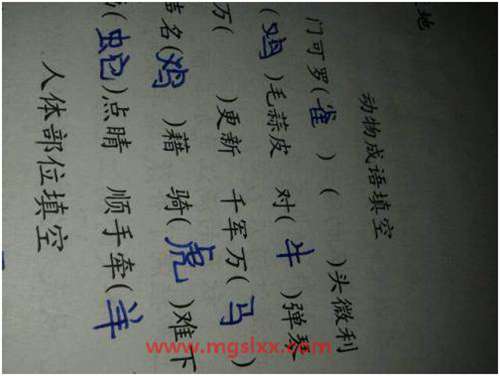 地
动物成语填空
门可罗(雀) ( )头微利
(鸡)毛蒜皮 对(牛)弹琴
万( )更新 千军万(马)
名(鸡)籍 骑(虎)难下
(蛇)点睛 顺手牵(羊
人体部位填空
www.mgslxx.com